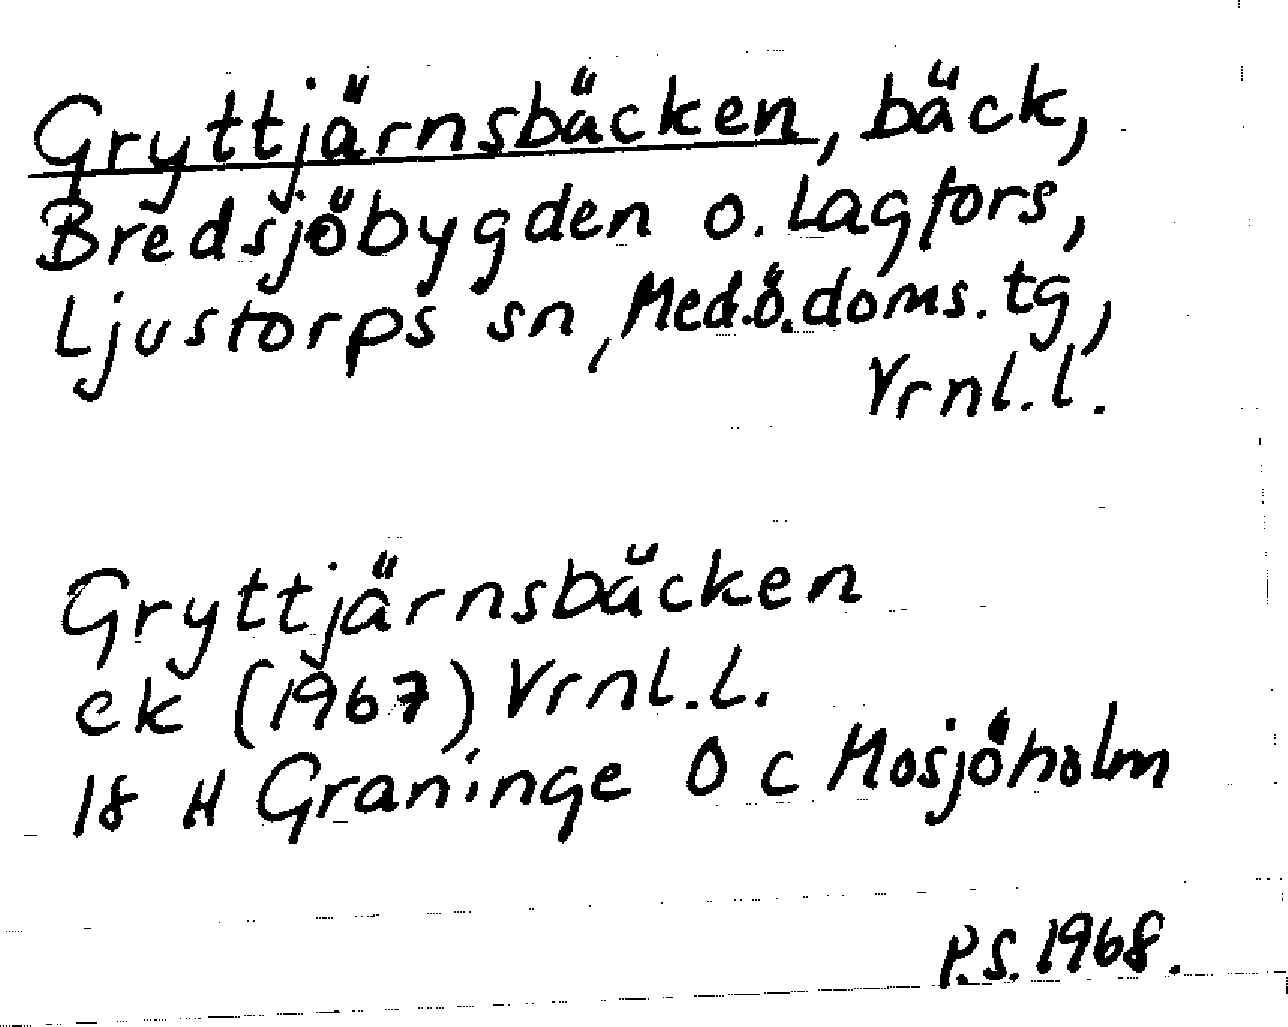 Gryttjärnsbäcken, bäck,
Bredsjöbygden o. Lagfors,
Ljustorps sn, Med.ö.doms.tg,
Vrnl.l.
Gryttjärnsbäcken
ek (1967) Vrnl.l.
18 H Graninge 0 c Mosjöholm
P.S. 1968.